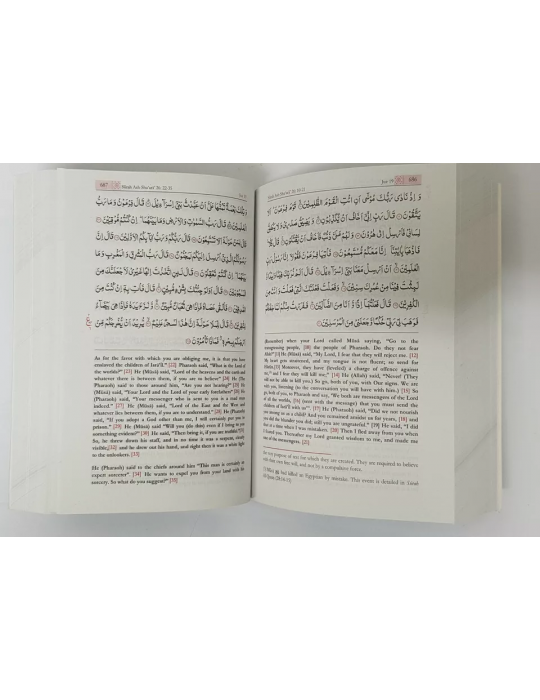 Sūrah Ash-Shu'arā' 26: 10-21 Juz 19 686
وَ اِذْ نَادٰى رَبُّكَ مُوْسٰٓى اَنِ ائْتِ الْقَوْمَ الظّٰلِمِيْنَ ۙ قَوْمَ فِرْعَوْنَ ؕ اَلَا
يَتَّقُوْنَ قَالَ رَبِّ اِنِّيْٓ اَخَافُ اَنْ يُّكَذِّبُوْنِ ؕ وَيَضِيْقُ صَدْرِيْ وَلَا يَنْطَلِقُ
لِسَانِيْ فَاَرْسِلْ اِلٰى هٰرُوْنَ وَلَهُمْ عَلَيَّ ذَنْۢبٌ فَاَخَافُ اَنْ يَّقْتُلُوْنِ ۚ قَالَ كَلَّا ۚ
فَاذْهَبَا بِاٰيٰتِنَآ اِنَّا مَعَكُمْ مُّسْتَمِعُوْنَ فَاْتِيَا فِرْعَوْنَ فَقُوْلَآ اِنَّا رَسُوْلُ رَبِّ
الْعٰلَمِيْنَ ۙ اَنْ اَرْسِلْ مَعَنَا بَنِيْٓ اِسْرَآءِيْلَ ؕ قَالَ اَلَمْ نُرَبِّكَ فِيْنَا وَلِيْدًا وَّ
لَبِثْتَ فِيْنَا مِنْ عُمُرِكَ سِنِيْنَ ۙ وَفَعَلْتَ فَعْلَتَكَ الَّتِيْ فَعَلْتَ وَاَنْتَ مِنَ
الْكٰفِرِيْنَ قَالَ فَعَلْتُهَآ اِذًا وَّاَنَا مِنَ الضَّآلِّيْنَ ؕ فَفَرَرْتُ مِنْكُمْ لَمَّا خِفْتُكُمْ
فَوَهَبَ لِيْ رَبِّيْ حُكْمًا وَّجَعَلَنِيْ مِنَ الْمُرْسَلِيْنَ
(Remember) when your Lord called Mūsā saying, "Go to the
transgressing people, [10] the people of Pharaoh. Do they not fear
Allah?" [11] He (Mūsā) said, "My Lord, I fear that they will reject me. [12]
My heart gets straitened, and my tongue is not fluent; so send for
Hārūn. [13] Moreover, they have (leveled) a charge of offence against
me, and I fear they will kill me." [14] He (Allah) said, "Never! (They
will not be able to kill you.) So go, both of you, with Our signs. We are
with you, listening (to the conversation you will have with him.) [15] So
go, both of you, to Pharaoh and say, 'We both are messengers of the Lord
of all the worlds, [16] (sent with the message) that you must send the
children of Isrā'īl with us.'" [17] He (Pharaoh) said, "Did we not nourish
you among us as a child? And you remained amidst us for years, [18] and
you did the blunder you did; still you are ungrateful." [19] He said, "I did
that at a time when I was mistaken. [20] Then I fled away from you when
I feared you. Thereafter my Lord granted wisdom to me, and made me
one of the messengers. [21]
the very purpose of test for which they are created. They are required to believe
with their own free will, and not by a compulsive force.
had killed an Egyptian by mistake. This event is detailed in Sūrah
687 Sūrah Ash-Shu'arā' 26: 22-35 Juz 19
وَتِلْكَ نِعْمَةٌ تَمُنُّهَا عَلَيَّ اَنْ عَبَّدْتَّ بَنِيْٓ اِسْرَآءِيْلَ ؕ قَالَ فِرْعَوْنُ وَمَا رَبُّ
الْعٰلَمِيْنَ ؕ قَالَ رَبُّ السَّمٰوٰتِ وَالْاَرْضِ وَمَا بَيْنَهُمَا ؕ اِنْ كُنْتُمْ مُّوْقِنِيْنَ قَالَ
لِمَنْ حَوْلَهٗٓ اَلَا تَسْتَمِعُوْنَ قَالَ رَبُّكُمْ وَرَبُّ اٰبَآئِكُمُ الْاَوَّلِيْنَ قَالَ اِنَّ
رَسُوْلَكُمُ الَّذِيْٓ اُرْسِلَ اِلَيْكُمْ لَمَجْنُوْنٌ قَالَ رَبُّ الْمَشْرِقِ وَ الْمَغْرِبِ وَمَا
بَيْنَهُمَا ؕ اِنْ كُنْتُمْ تَعْقِلُوْنَ قَالَ لَئِنِ اتَّخَذْتَ اِلٰهًا غَيْرِيْ لَاَجْعَلَنَّكَ مِنَ
الْمَسْجُوْنِيْنَ قَالَ اَوَلَوْ جِئْتُكَ بِشَيْءٍ مُّبِيْنٍ ۚ قَالَ فَاْتِ بِهٖٓ اِنْ كُنْتَ مِنَ
الصّٰدِقِيْنَ فَاَلْقٰى عَصَاهُ فَاِذَا هِيَ ثُعْبَانٌ مُّبِيْنٌ ۚۖ وَّ نَزَعَ يَدَهٗ فَاِذَا هِيَ بَيْضَآءُ
لِلنّٰظِرِيْنَ قَالَ لِلْمَلَاِ حَوْلَهٗٓ اِنَّ هٰذَا لَسٰحِرٌ عَلِيْمٌ ۙ يُّرِيْدُ اَنْ يُّخْرِجَكُمْ مِّنْ
اَرْضِكُمْ بِسِحْرِهٖ ۖ فَمَاذَا تَاْمُرُوْنَ
As for the favor with which you are obliging me, it is that you have
enslaved the children of Isrā'īl." [22] Pharaoh said, "What is the Lord of
the worlds?" [23] He (Mūsā) said, "Lord of the heavens and the earth and
whatever there is between them, if you are to believe" [24] He (the
Pharaoh) said to those around him, "Are you not hearing?" [25] He
(Mūsā) said, "Your Lord and the Lord of your early forefathers" [26] He
(Pharaoh) said, "Your messenger who is sent to you is a mad man
indeed." [27] He (Mūsā) said, "Lord of the East and the West and
whatever lies between them, if you are to understand." [28] He (Pharaoh)
said, "If you adopt a God other than me, I will certainly put you in
prison." [29] He (Mūsā) said "Will you (do this) even if I bring to you
something evident?" [30] He said, "Then bring it, if you are truthful." [31]
So, he threw down his staff, and in no time it was a serpent, visibly
visible, [32] and he drew out his hand, and right then it was a white light
to the onlookers. [33]
He (Pharaoh) said to the chiefs around him "This man is certainly an
expert sorcerer" [34] He wants to expel you from your land with his
sorcery. So what do you suggest?" [35]